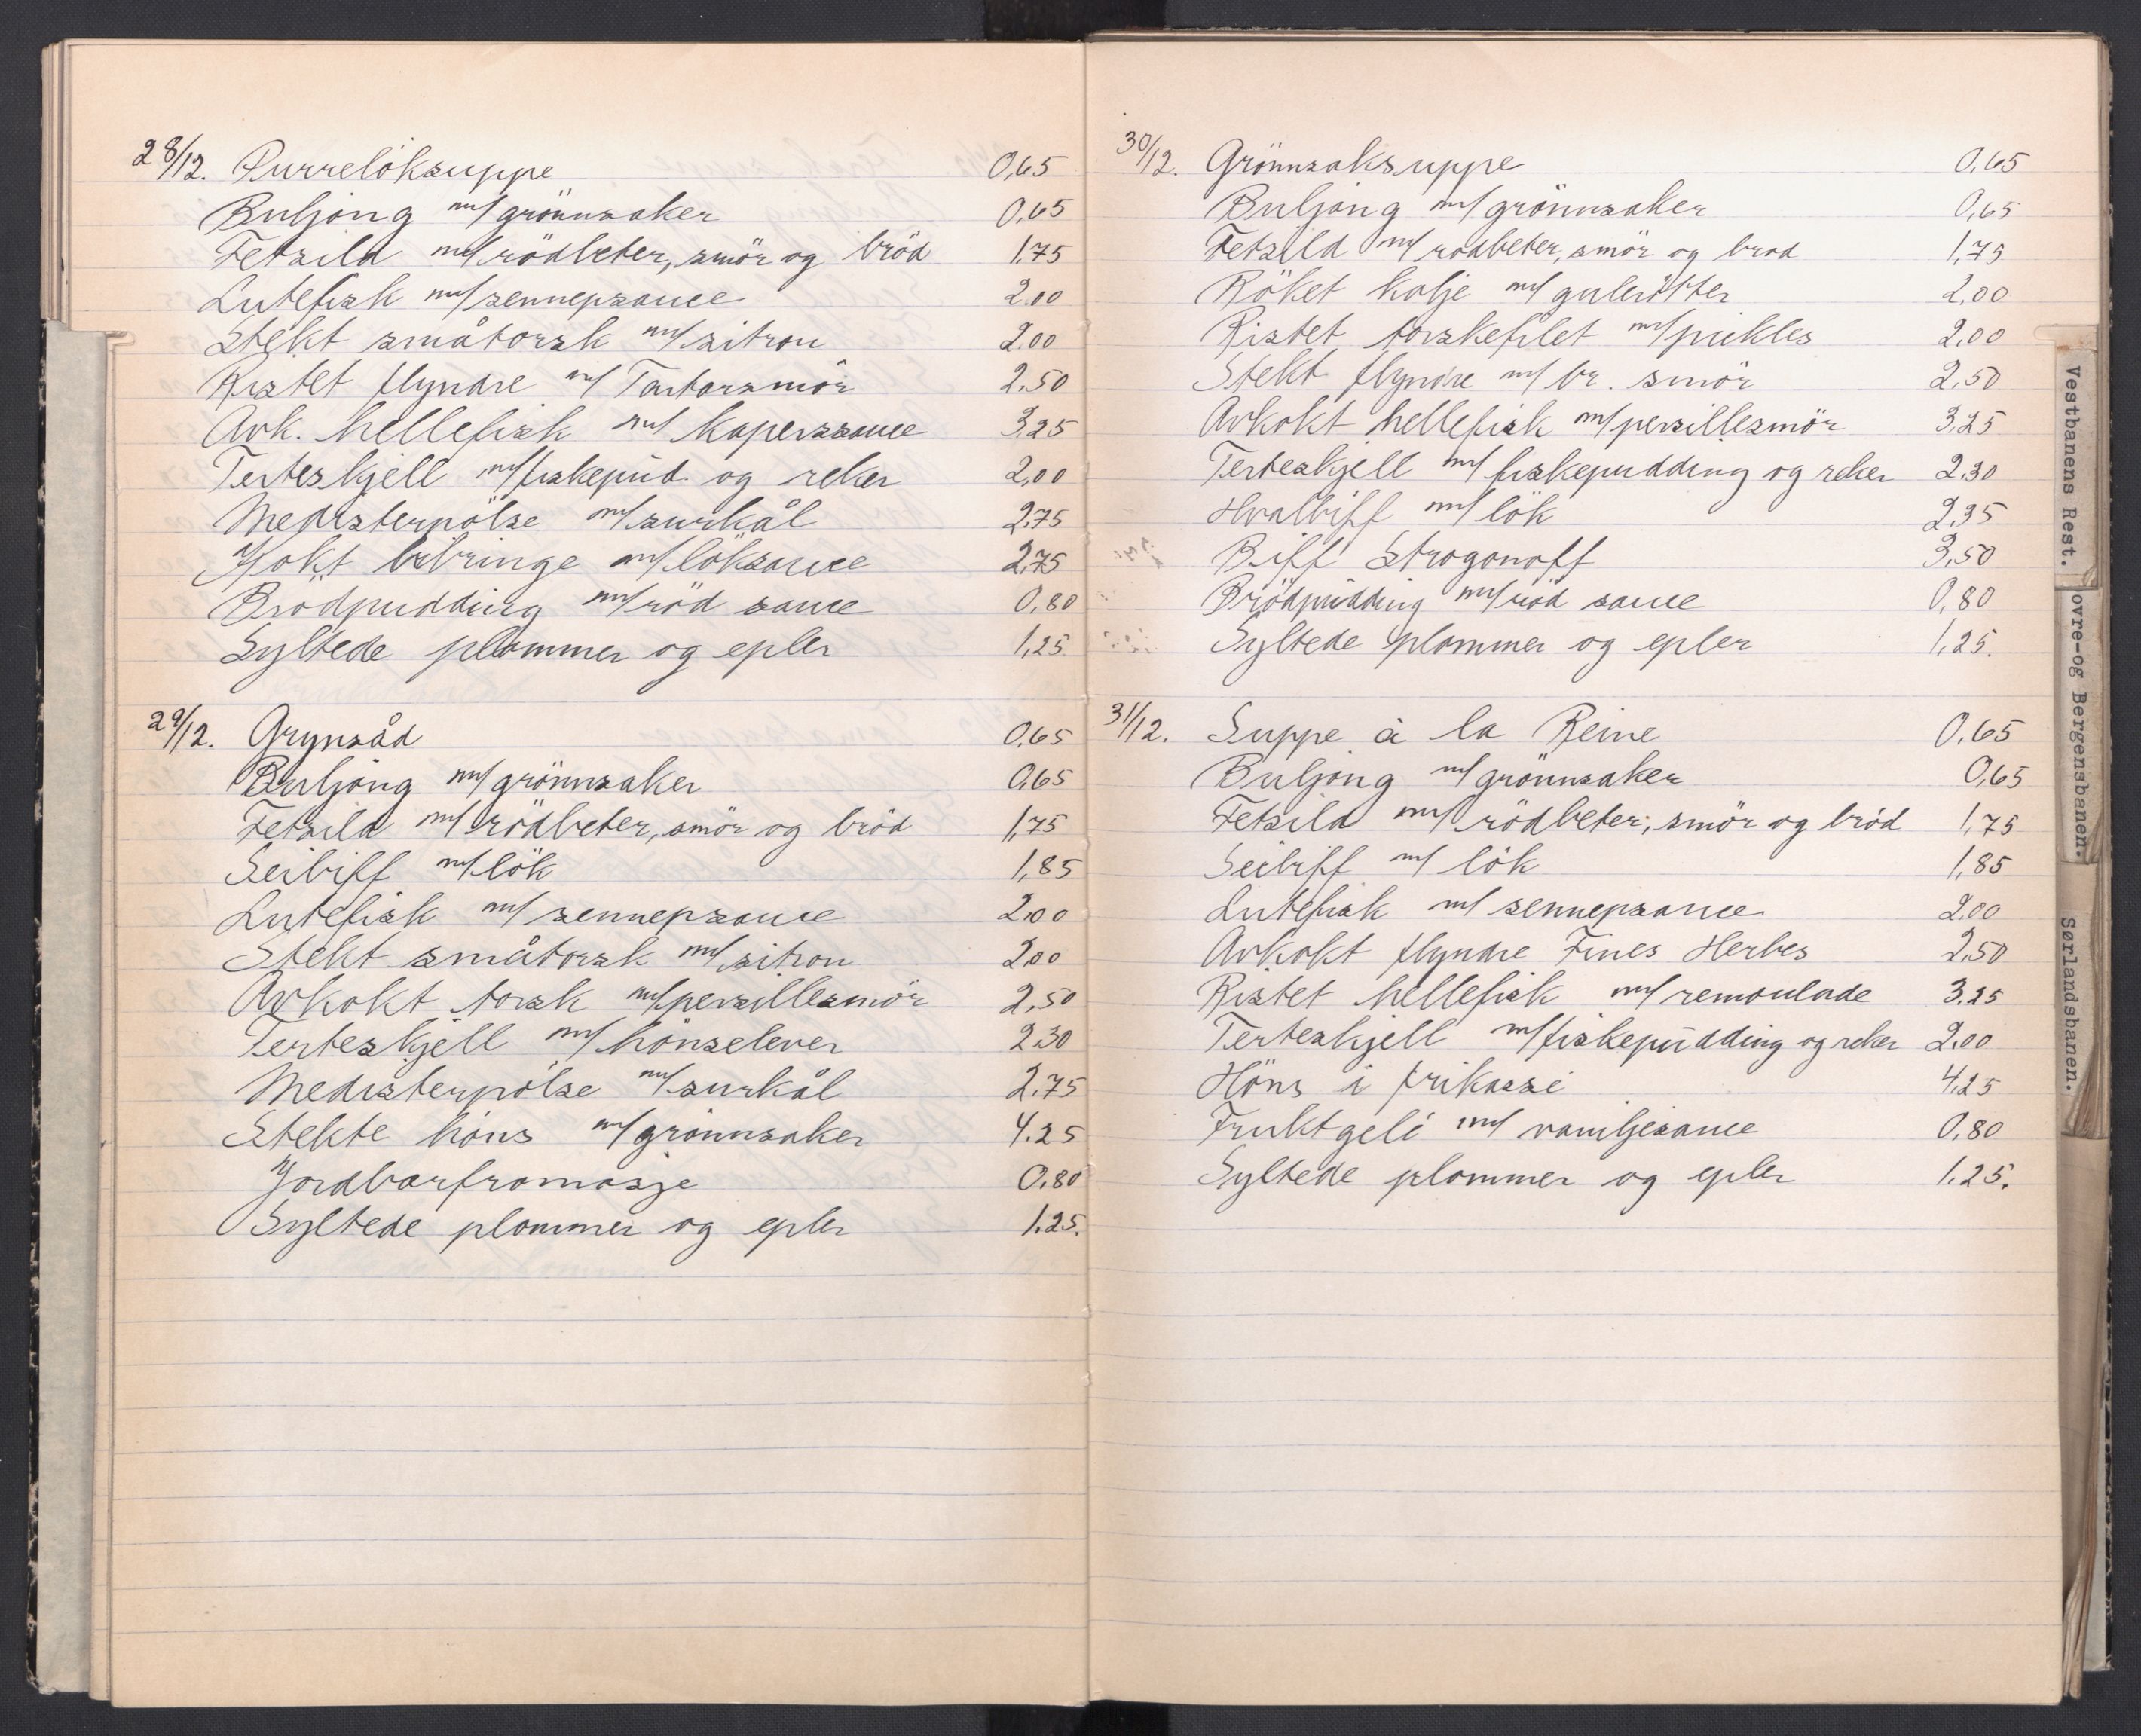 28/12. Purrelöksuppe 0,65
Buljong m/grönnsaker 0,65
Fetsild m/rödbeter, smör og bröd 1,75
Lutefisk m/sennepsauce 2.00
Stekt småtorsk m/sitron 2.00
Ristet flyndre m/ Tartarsmör 2.50
Avk. hellefisk m/ kaperssauce 3,25
Terteskjell m/fiskepud. og reker 2,00
Medisterpölse m/surkål 2,75
Kokt bibringe m/löksauce 2,75
Brödpudding m/röd sauce 0,80
Syltede plommer og epler 1,25.
29/12. Grynsåd 0,65
Buljong m/grönnsaker 0,65
Fetsild m/rödbeter, smör og bröd 1,75
Seibiff m/lök 1,85
Lutefisk m/sennepsauce 2,00
Stekt småtorsk m/sitron 2,00
Avkokt torsk m/persillesmör 2,50
Terteskjell m/hönselever 2.30
Medisterpölse m/surkål 2,75
Stekte höns m/grönnsaker 4.25
Jordbærfromasje 0.80
Syltede plommer og epler 1.25.
30/12. Grönnsaksuppe 0,65
Buljong m/grönnsaker 0,65
Fetsild m/rödbeter, smör og bröd 1,75
Röket kolje m/gulerötter 2,00
Ristet torskefilet m/pickles 2,00
Stekt flyndre m/ br. smör 2,50
Avkokt hellefisk m/persillesmör 3,25
Terteskjell m/fiskepudding og reker 2.30
Hvalbiff m/lök 2,35
Biff Strogonoff 3,50
Brödpudding m/röd sauce 0,80
Syltede plommer og epler 1,25.
31/12. Suppe à la Reine 0,65
Buljong m/grönnsaker 0,65
Fetsild m/rödbeter, smör og bröd 1,75
Seibiff m/ lök 1,85
Lutefisk m/ sennepsauce 2.00
Avkokt flyndre Fines Herbes 2,50
Ristet hellefisk m/remoulade 3.25
Terteskjell m/fiskepudding og reker 2.00
Höns i frikassé 4.25
Fruktgelé m/ vaniljesauce 0.80
Syltede plommer og epler 1.25.
Vestbanens Rest.
ovre-og Bergensbanen.
Sørlandsbanen.